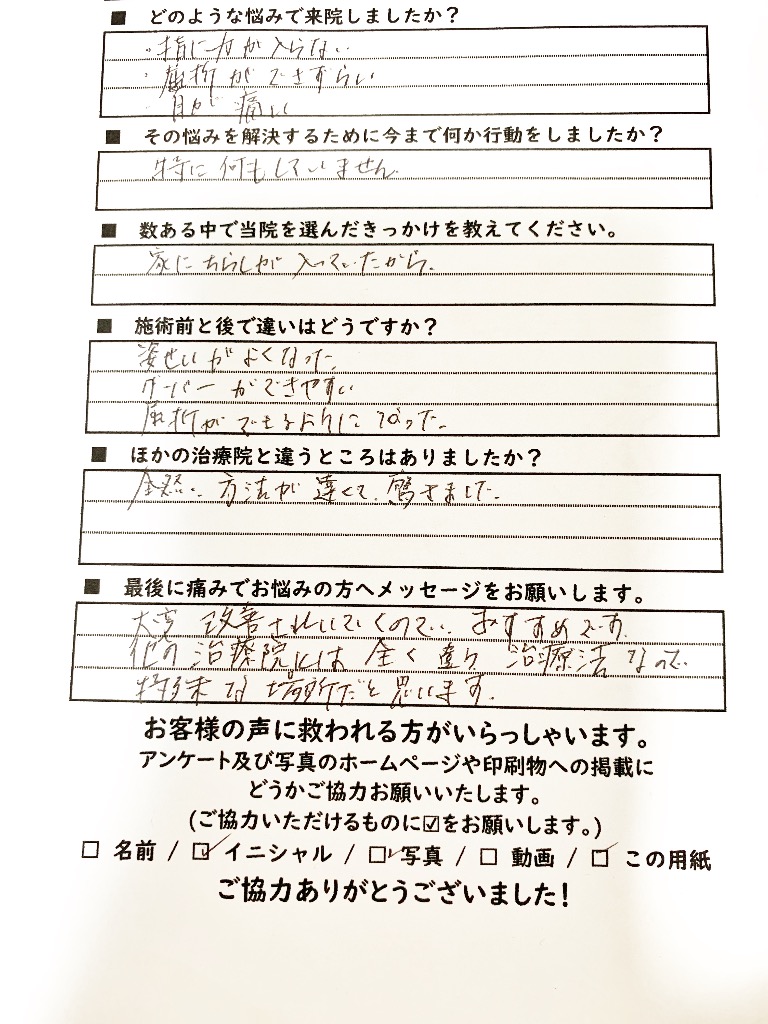 ■ どのような悩みで来院しましたか？
・指に力が入らない
・屈折ができずらい
・肩が痛い
■ その悩みを解決するために今まで何か行動をしましたか？
特に何もしていません。
■ 数ある中で当院を選んだきっかけを教えてください。
家にちらしが入っていたから。
■ 施術前と後で違いはどうですか？
姿せいがよくなった。
グーパーができやすい
屈折ができるようになった。
■ ほかの治療院と違うところはありましたか？
全然、方法が違くて、驚きました。
■ 最後に痛みでお悩みの方へメッセージをお願いします。
大変 改善されいていくので、おすすめです。
他の治療院には全く違う 治療法なので
特殊な場所だと思います。
お客様の声に救われる方がいらっしゃいます。
アンケート及び写真のホームページや印刷物への掲載に
どうかご協力お願いいたします。
(ご協力いただけるものに☑をお願いします。)
□ 名前 / ☑ イニシャル / ☑ 写真 / □ 動画 / ☑ この用紙
ご協力ありがとうございました!